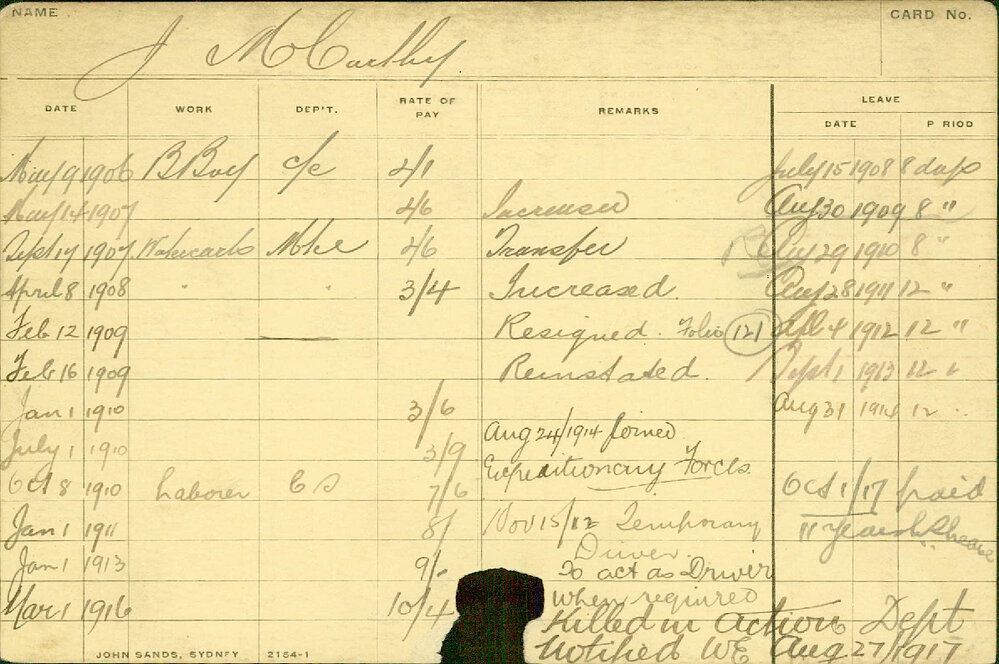 NAME
CARD No.
J McCarthy
DATE WORK DEP'T. RATE OF PAY REMARKS LEAVE
DATE P RIOD
May 9 1906 B Boy c/e 2/1 July 15 1908 8 days
May 14 1907 2/6 Increased Aug 30 1909 8 "
Sept 17 1907 Transfer 2/6 Aug 29 1910 8 "
April 8 1908 " " 3/4 Increased. Aug 28 1911 12 "
Feb 12 1909 Resigned. Folio 121 4 1912 12 "
Feb 16 1909 Reinstated. Sept 1 1913 12 "
Jan 1 1910 3/6 Aug 31 1914 12 "
July 1 1910 3/9 Aug 24/1914 joined
Expeditionary Forces
Oct 8 1910 Laborer 7/6 Oct 1/17 paid
Jan 1 1911 8/ Nov 15/12 Temporary 11 years
Driver.
Jan 1 1913 9/- To act as Driver
when required
Mar 1 1916 10/4 Killed in action Dept
Notified WE Aug 27/1917
JOHN SANDS, SYDNEY 2154-1